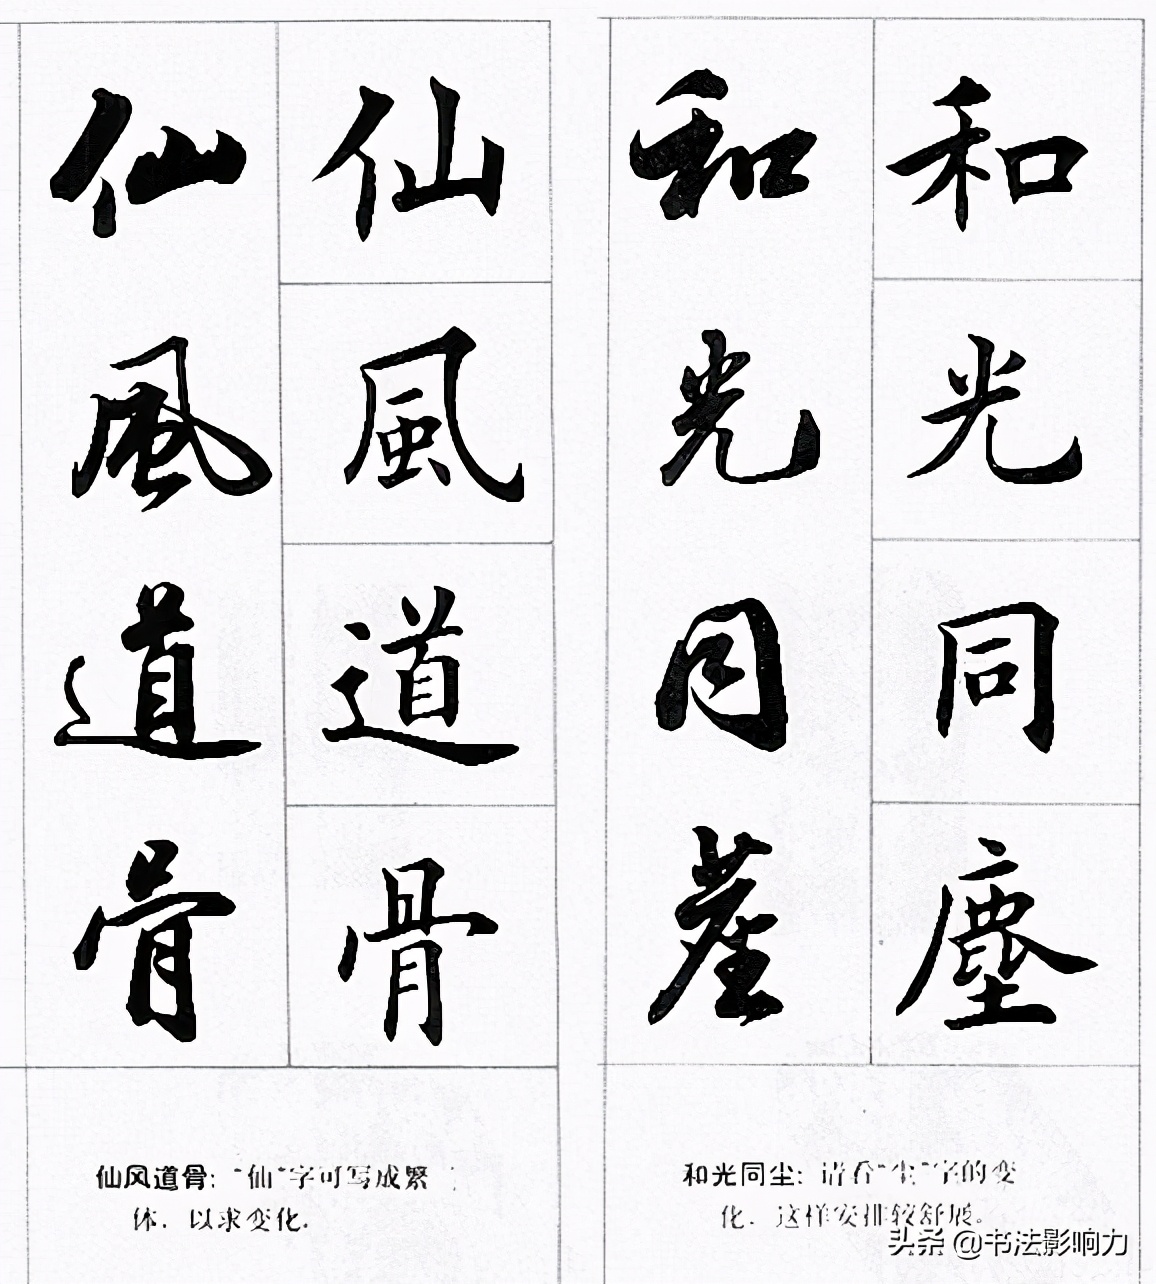 仙風道骨
仙風道骨
仙风道骨:“仙”字可写成繁
体.以求变化.
和光同塵
和光同塵
和光同尘:请看“尘”字的变
化.这样安排较舒展。
头条 @书法影响力